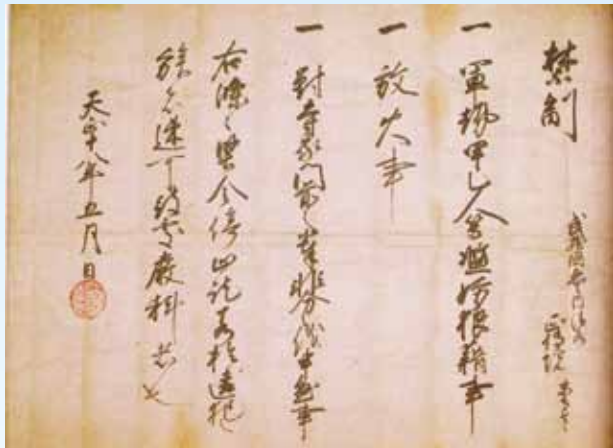 禁制
一 軍勢甲乙人等濫妨狼藉事
一 放火事
一 対寺家門前之輩非分儀申懸事
右條々堅令停止訖若於違犯
族者速可被處厳科者也
天正十八年五月日